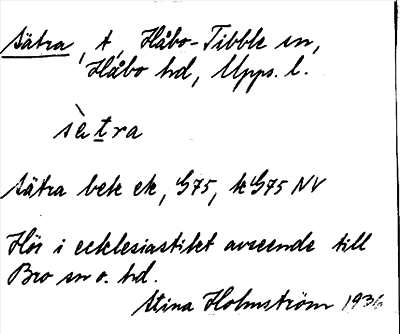 Sätra, t, Håbo-Tibble sn,
Håbo hd, Upps. l.
sὲtra
Sätra bek ek, G75, kG75 NV
Hör i ecklesiastikt avseende till
Bro sn o. hd.
Stina Holmström 1936